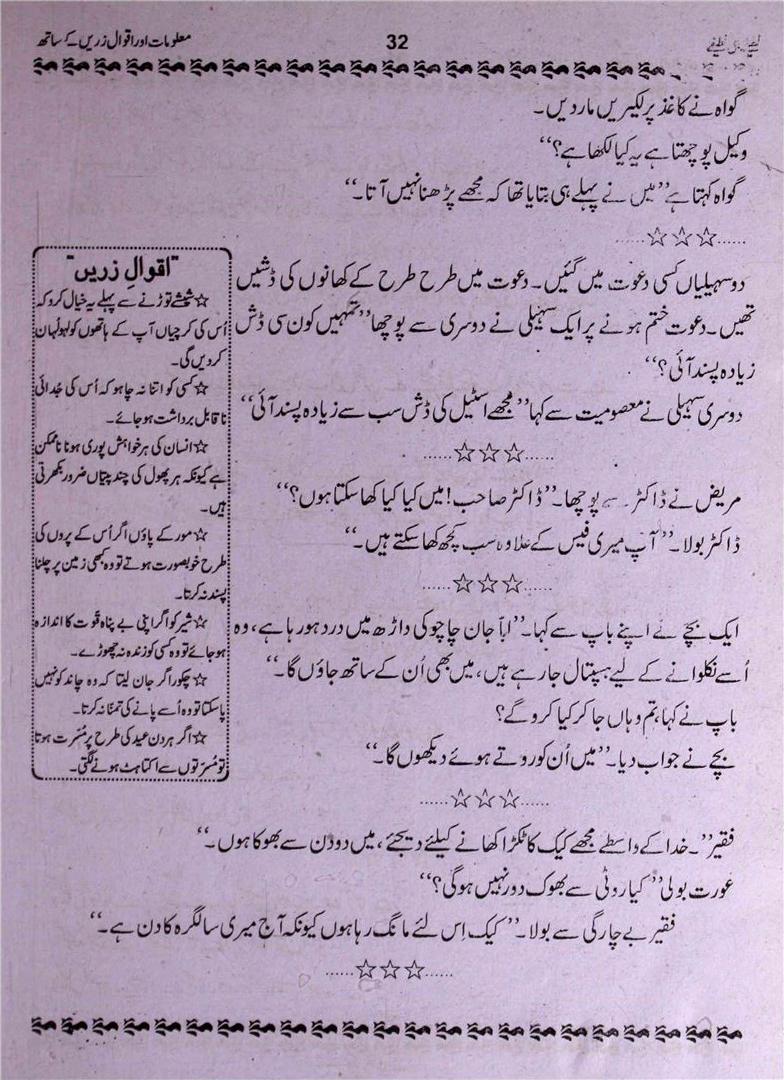 لطیفے
32
معلومات اور اقوال زریں کے ساتھ
گواہ نے کاغذ پر لکیریں مار دیں۔
وکیل پوچھتا ہے یہ کیا لکھا ہے؟‘‘
گواہ کہتا ہے’’میں نے پہلے ہی بتایا تھا کہ مجھے پڑھنا نہیں آتا۔‘‘
......☆☆☆......
دو سہیلیاں کسی دعوت میں گئیں۔ دعوت میں طرح طرح کے کھانوں کی ڈشیں
تھیں۔ دعوت ختم ہونے پر ایک سہیلی نے دوسری سے پوچھا’’تمہیں کون سی ڈش
زیادہ پسند آئی؟‘‘
دوسری سہیلی نے معصومیت سے کہا’’مجھے اسٹیل کی ڈش سب سے زیادہ پسند آئی‘‘
......☆☆☆......
مریض نے ڈاکٹر سے پوچھا۔’’ڈاکٹر صاحب! میں کیا کیا کھا سکتا ہوں؟‘‘
ڈاکٹر بولا۔’’آپ میری فیس کے علاوہ سب کچھ کھا سکتے ہیں۔‘‘
......☆☆☆......
ایک بچے نے اپنے باپ سے کہا۔’’ابا جان چاچو کی داڑھ میں درد ہو رہا ہے، وہ
اُسے نکلوانے کے لیے ہسپتال جا رہے ہیں، میں بھی اُن کے ساتھ جاؤں گا۔‘‘
باپ نے کہا، تم وہاں جا کر کیا کرو گے؟
بچے نے جواب دیا۔’’میں اُن کو روتے ہوئے دیکھوں گا۔‘‘
......☆☆☆......
فقیر’’۔خدا کے واسطے مجھے کیک کا ٹکڑا کھانے کیلئے دیجئے، میں دو دن سے بھوکا ہوں۔‘‘
عورت بولی’’کیا روٹی سے بھوک دور نہیں ہوگی؟‘‘
فقیر بے چارگی سے بولا۔’’کیک اِس لئے مانگ رہا ہوں کیونکہ آج میری سالگرہ کا دن ہے۔‘‘
......☆☆☆......
"اقوالِ زریں"
☆شیشے توڑنے سے پہلے یہ خیال کرو کہ
اُس کی کرچیاں آپ کے ہاتھوں کو لہولُہان
کر دیں گی۔
☆کسی کو اتنا نہ چاہو کہ اُس کی جُدائی
ناقابل برداشت ہو جائے۔
☆انسان کی ہر خواہش پوری ہونا ناممکن
ہے کیونکہ ہر پھول کی چند پتیاں ضرور بکھرتی
ہیں۔
☆مور کے پاؤں اگر اُس کے پروں کی
طرح خوبصورت ہوتے تو وہ کبھی زمین پر چلنا
پسند نہ کرتا۔
☆شیر کو اگر اپنی بے پناہ قوت کا اندازہ
ہو جائے تو وہ کسی کو زندہ نہ چھوڑے۔
☆چکور اگر جان لیتا کہ وہ چاند کو نہیں
پا سکتا تو وہ اُسے پانے کی تمنّا نہ کرتا۔
☆اگر ہر دن عید کی طرح پُر مُسّرت ہوتا
تو مُسرّتوں سے اکتاہٹ ہونے لگتی۔